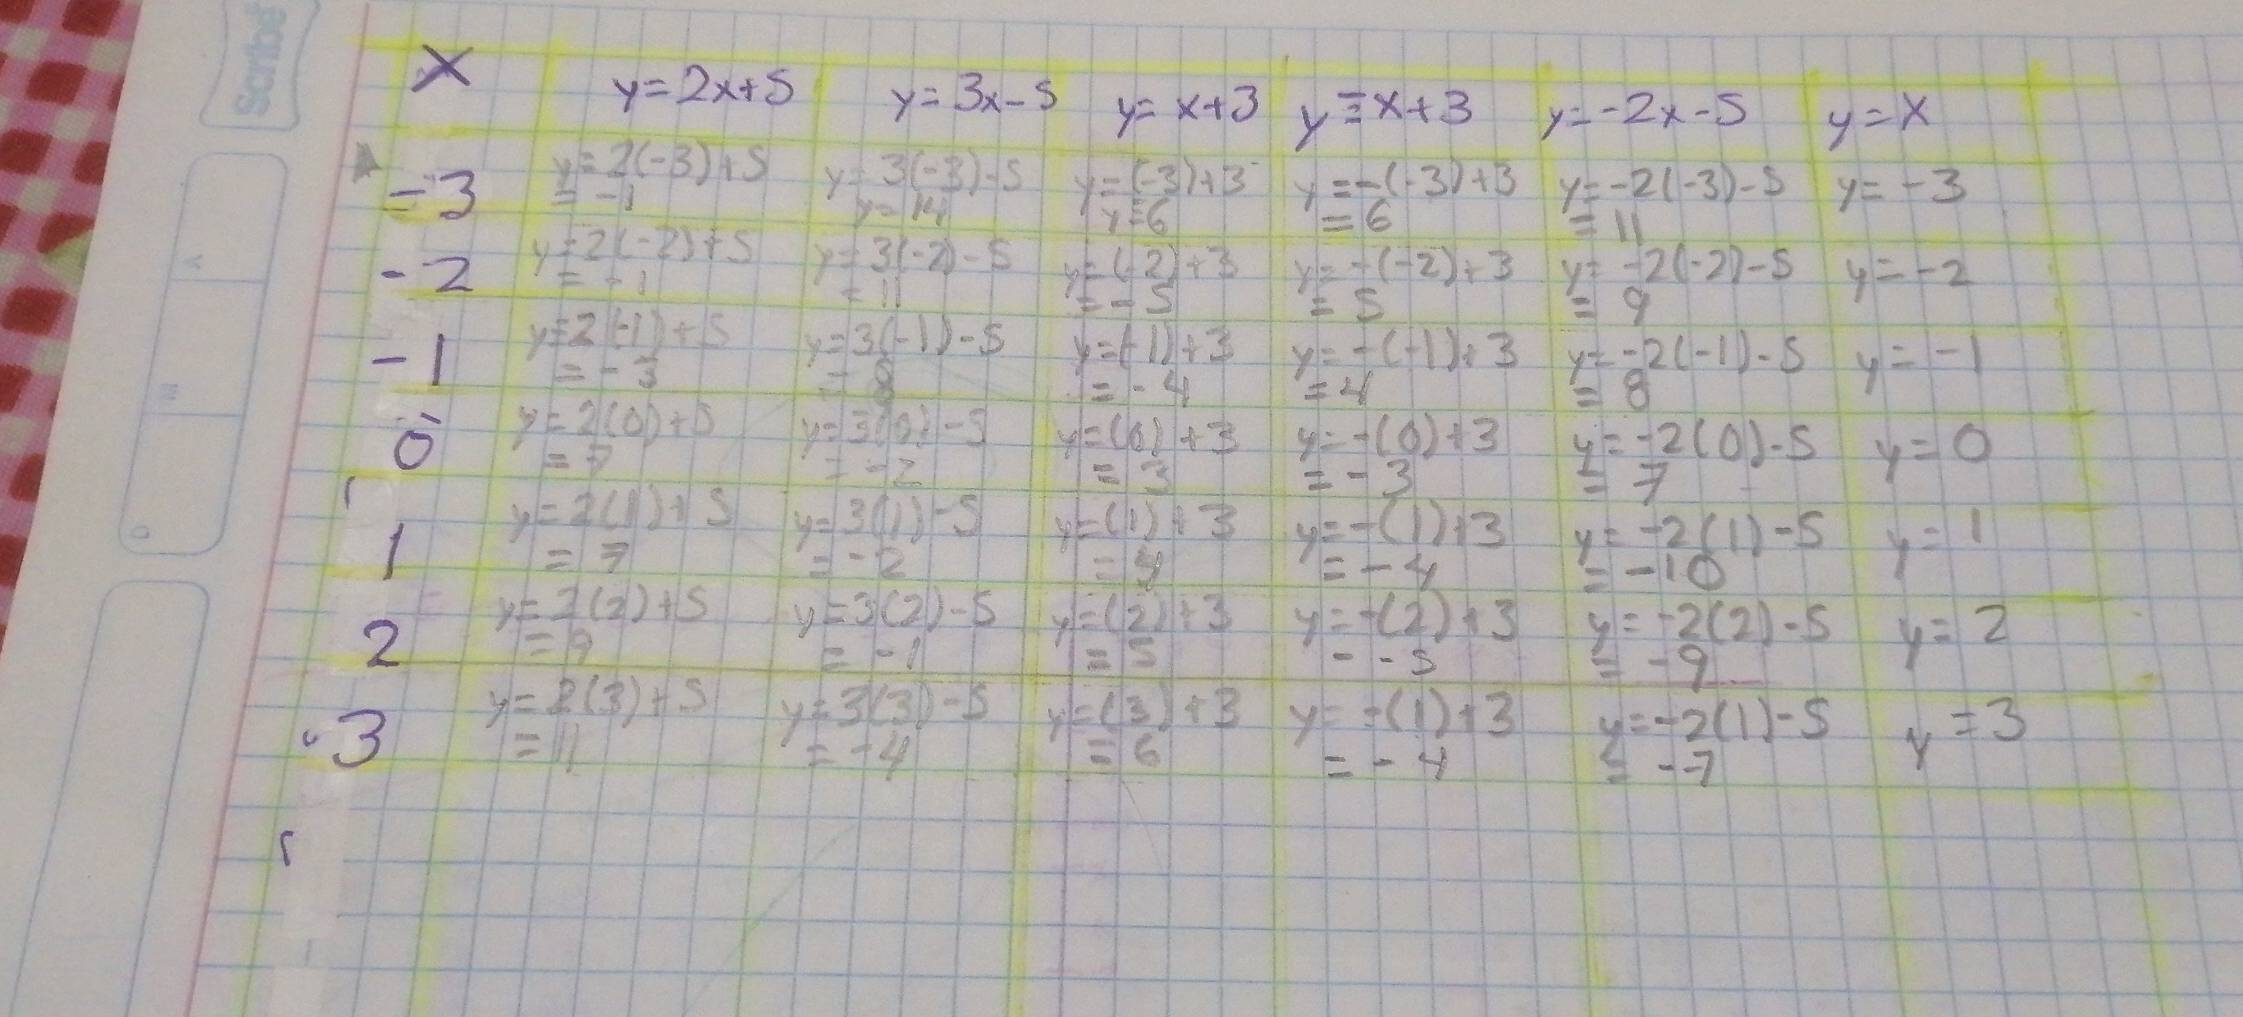 Scribe
x y=2x+5 y=3x-5 y=x+3 y=-x+3 y=-2x-5 y=x
-3 y=2(-3)+5 y=3(-3)-5 y=(-3)+3 y=-(-3)+3 y=-2(-3)-5 y=-3
= -1 y=14 y=6 =6 =11
-2 y=2(-2)+5 y=3(-2)-5 y=(-2)+3 y=-(-2)+3 y=-2(-2)-5 y=-2
= -1 =11 =-5 =5 =9
-1 y=2(-1)+5 y=3(-1)-5 y=(-1)+3 y=-(-1)+3 y=-2(-1)-5 y=-1
= -3 =8 =-4 =4 =8
0 y=2(0)+5 y=3(0)-5 y=(0)+3 y=-(0)+3 y=-2(0)-5 y=0
=7 =-2 =3 =-3 =7
1 y=2(1)+5 y=3(1)-5 y=(1)+3 y=-(1)+3 y=-2(1)-5 y=1
=7 =-2 =4 =-4 =-10
2 y=2(2)+5 y=3(2)-5 y=(2)+3 y=-(2)+3 y=-2(2)-5 y=2
=9 =-1 =5 --5 =-9
3 y=2(3)+5 y=3(3)-5 y=(3)+3 y=-(1)+3 y=-2(1)-5 y=3
=11 =-4 =6 =-4 =-7